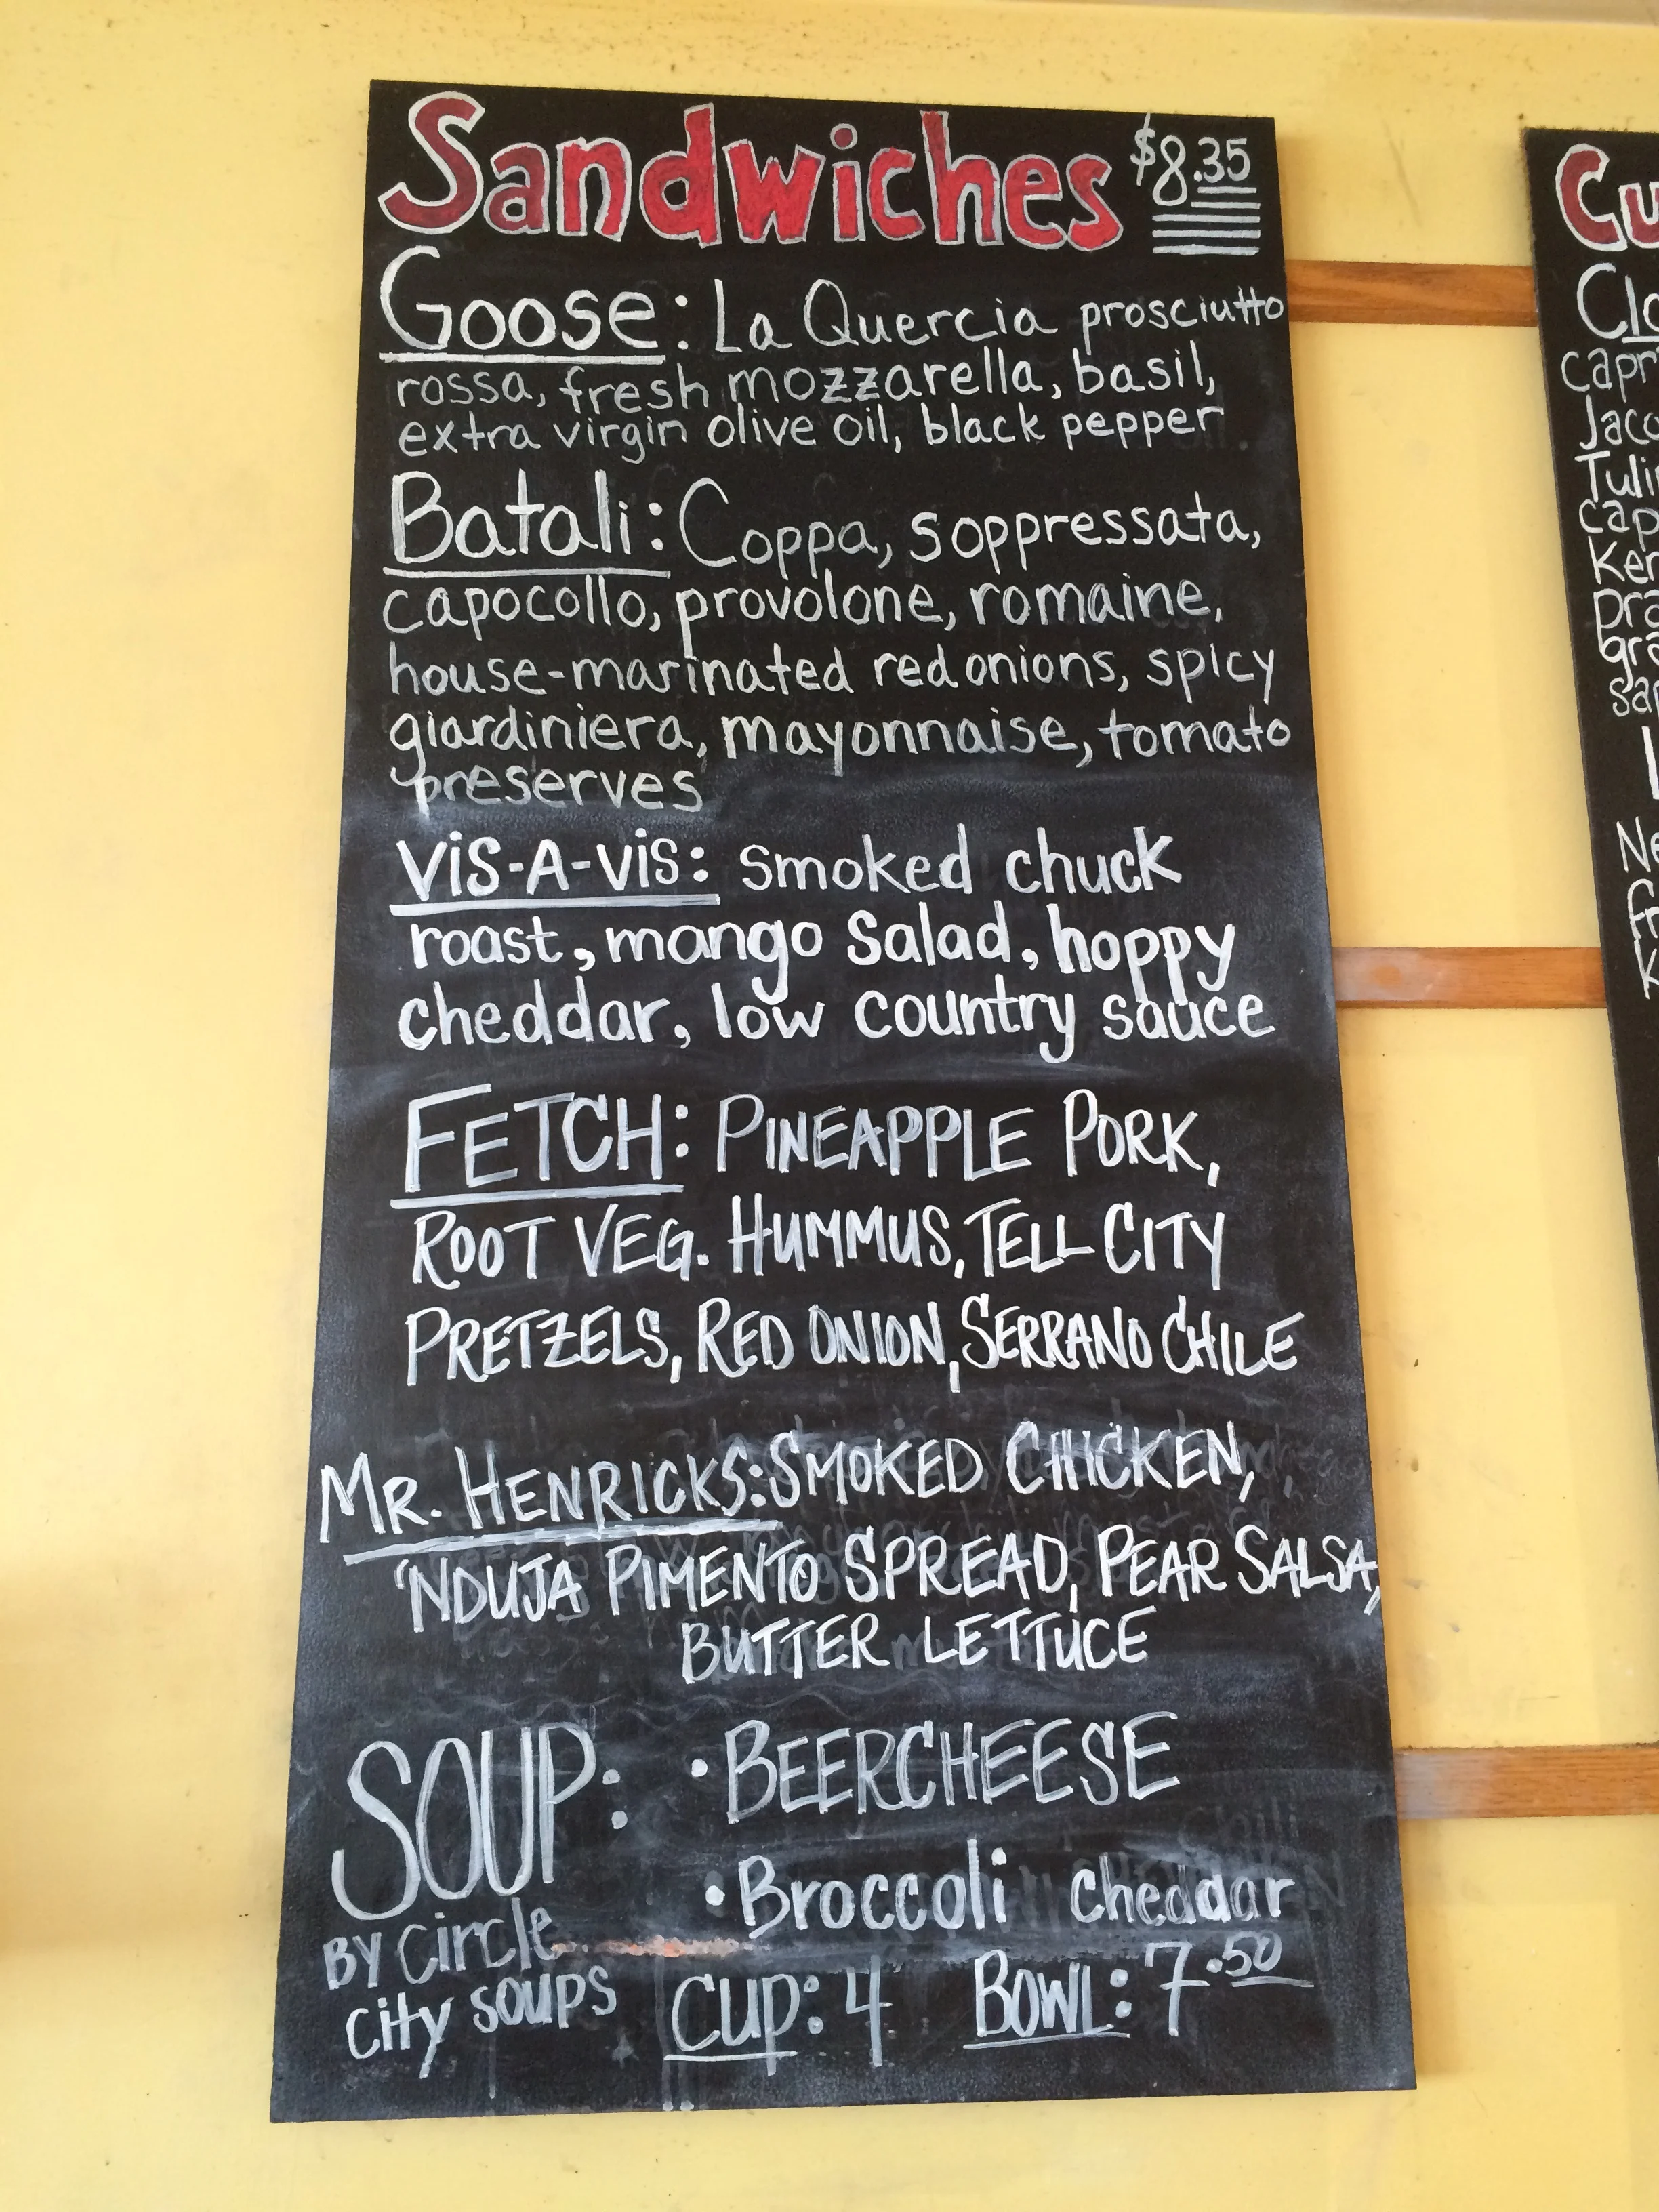 Sandwiches $8.35
Goose: La Quercia prosciutto
rossa, fresh mozzarella, basil,
extra virgin olive oil, black pepper
Batali: Coppa, soppressata,
capocollo, provolone, romaine,
house-marinated red onions, spicy
giardiniera, mayonnaise, tomato
preserves
ViS-A-ViS: smoked chuck
roast, mango Salad, hoppy
cheddar, low country sauce
FETCH: PINEAPPLE PORK,
ROOT VEG. HUMMUS, TELL CITY
PRETZELS, RED ONION, SERRANO CHILE
MR. HENRICKS: SMOKED CHICKEN,
'NDUJA PIMENTO SPREAD, PEAR SALSA,
BUTTER LETTUCE
SOUP: • BEERCHEESE
• Broccoli cheddar
BY Circle
City SOUPS
CUP: 4 BOWL: 7.50
Cu
Clo
capr
Jaco
Tuli
cap
Ker
pra
gra
Ne
Fr